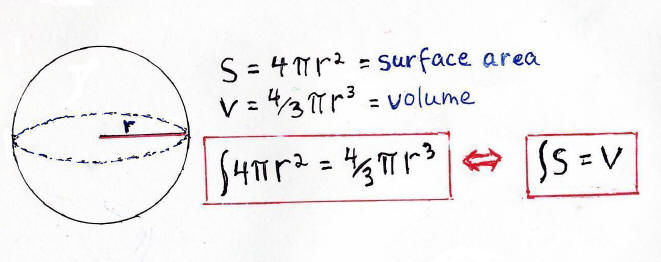 r
S = 4πr² = surface area
V = 4/3πr³ = volume
∫4πr² = 4/3πr³ ⇔ ∫S = V